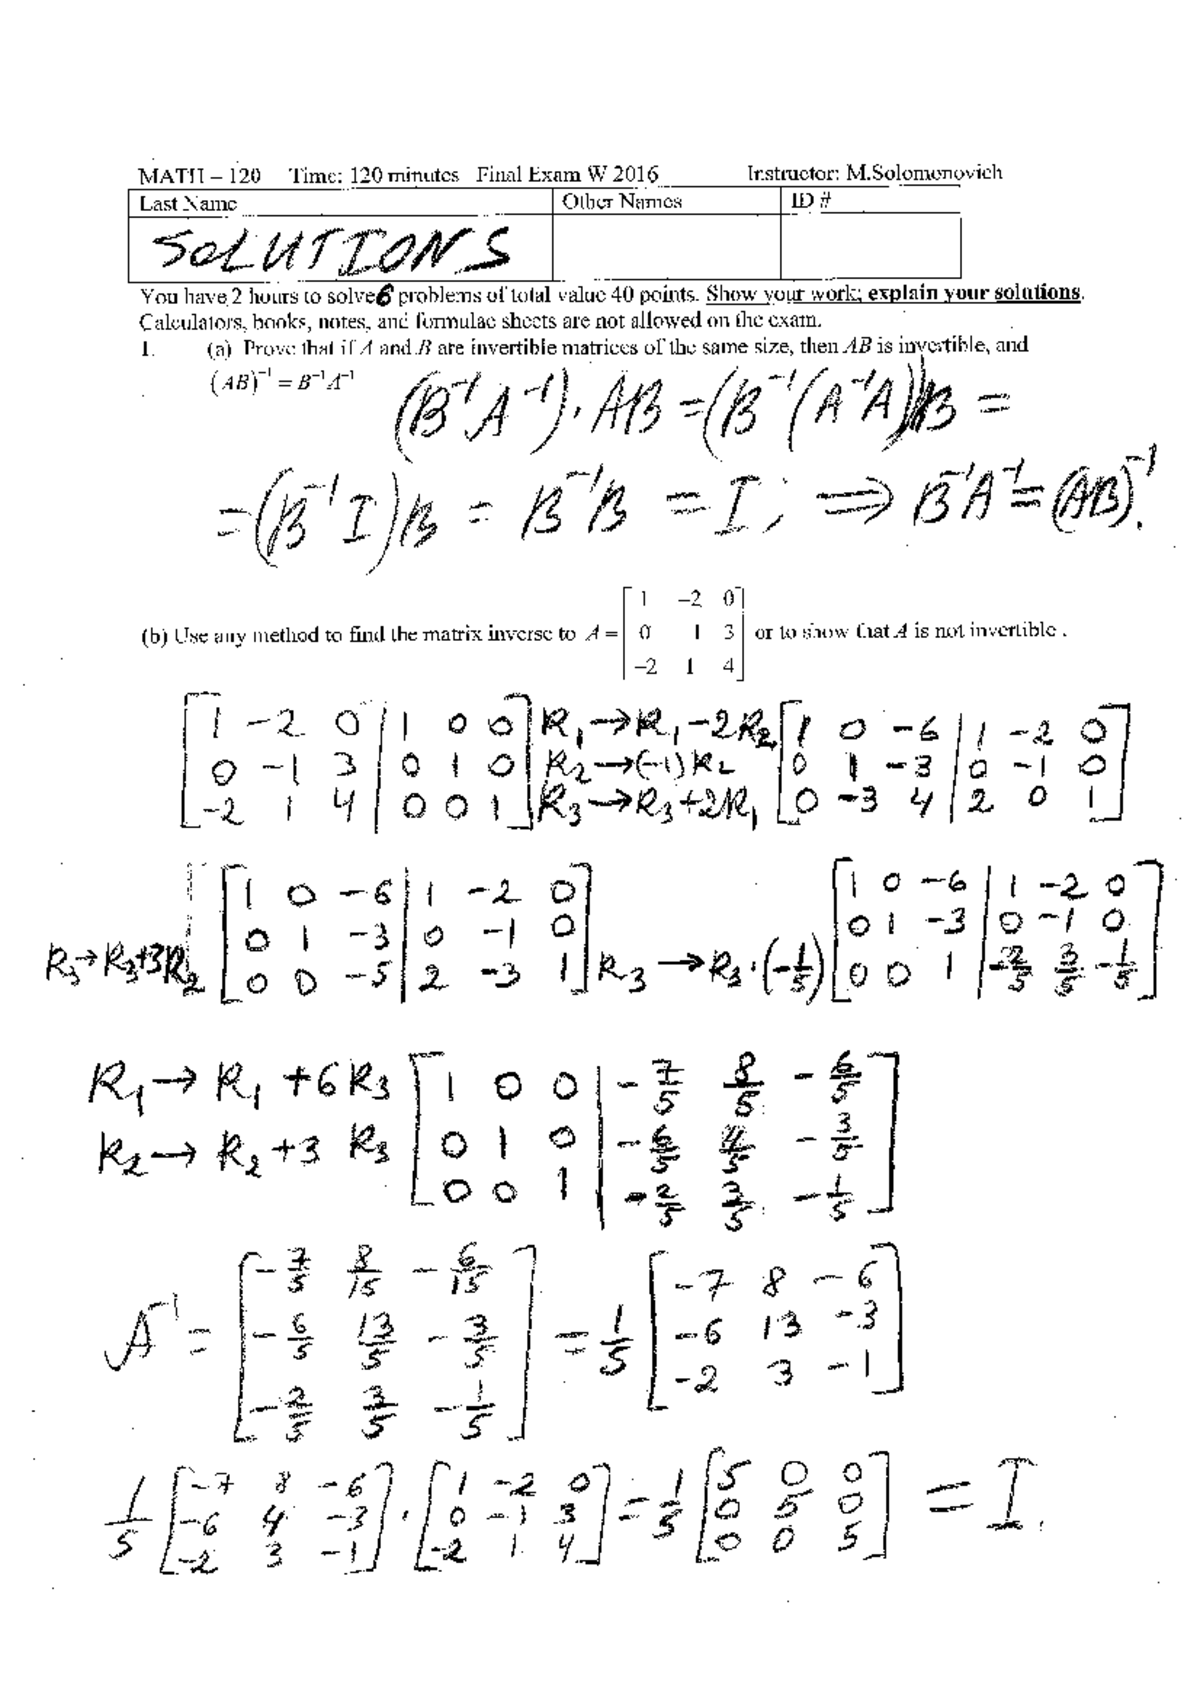 MATH – 120 Time: 120 minutes Final Exam W 2016 Instructor: M.Solomonovich
Last Name Other Names ID #
SOLUTIONS
You have 2 hours to solve 6 problems of total value 40 points. Show your work; explain your solutions.
Calculators, books, notes, and formulae sheets are not allowed on the exam.
1. (a) Prove that if A and B are invertible matrices of the same size, then AB is invertible, and
(AB)⁻¹ = B⁻¹A⁻¹
(B⁻¹A⁻¹)·AB = (B⁻¹(A⁻¹A))B =
= (B⁻¹I)B = B⁻¹B = I; ⇒ B⁻¹A⁻¹ = (AB)⁻¹.
1 –2 0
(b) Use any method to find the matrix inverse to A = 0 1 3 or to show that A is not invertible .
–2 1 4
1 -2 0 | 1 0 0 R₁→R₁-2R₂ 1 0 -6 | 1 -2 0
0 -1 3 | 0 1 0 R₂→(-1)R₂ 0 1 -3 | 0 -1 0
-2 1 4 | 0 0 1 R₃→R₃+2R₁ 0 -3 4 | 2 0 1
1 0 -6 | 1 -2 0 1 0 -6 | 1 -2 0
0 1 -3 | 0 -1 0 0 1 -3 | 0 -1 0
R₃→R₃+3R₂ 0 0 -5 | 2 -3 1 R₃→R₃·(-1/5) 0 0 1 | -2/5 3/5 -1/5
R₁→R₁+6R₃ 1 0 0 | -7/5 8/5 -6/5
R₂→R₂+3R₃ 0 1 0 | -6/5 4/5 -3/5
0 0 1 | -2/5 3/5 -1/5
-7/5 8/15 -6/15 -7 8 -6
A⁻¹ = -6/5 13/5 -3/5 = 1/5 -6 13 -3
-2/5 3/5 -1/5 -2 3 -1
-7 8 -6 1 -2 0 5 0 0
1/5 -6 4 -3 · 0 -1 3 = 1/5 0 5 0 = I.
-2 3 -1 -2 1 4 0 0 5